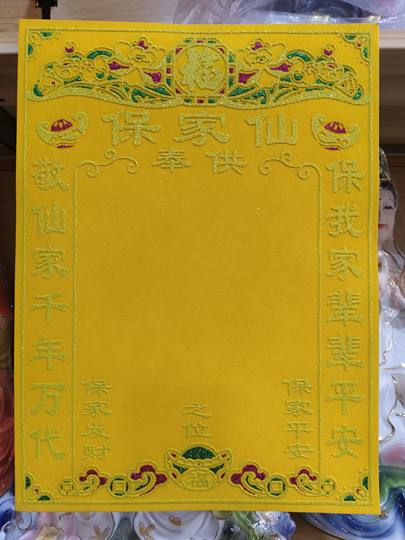 福
保家仙
奉供
敬仙家千年万代
保我家辈辈平安
保家发财
之位
保家平安
福